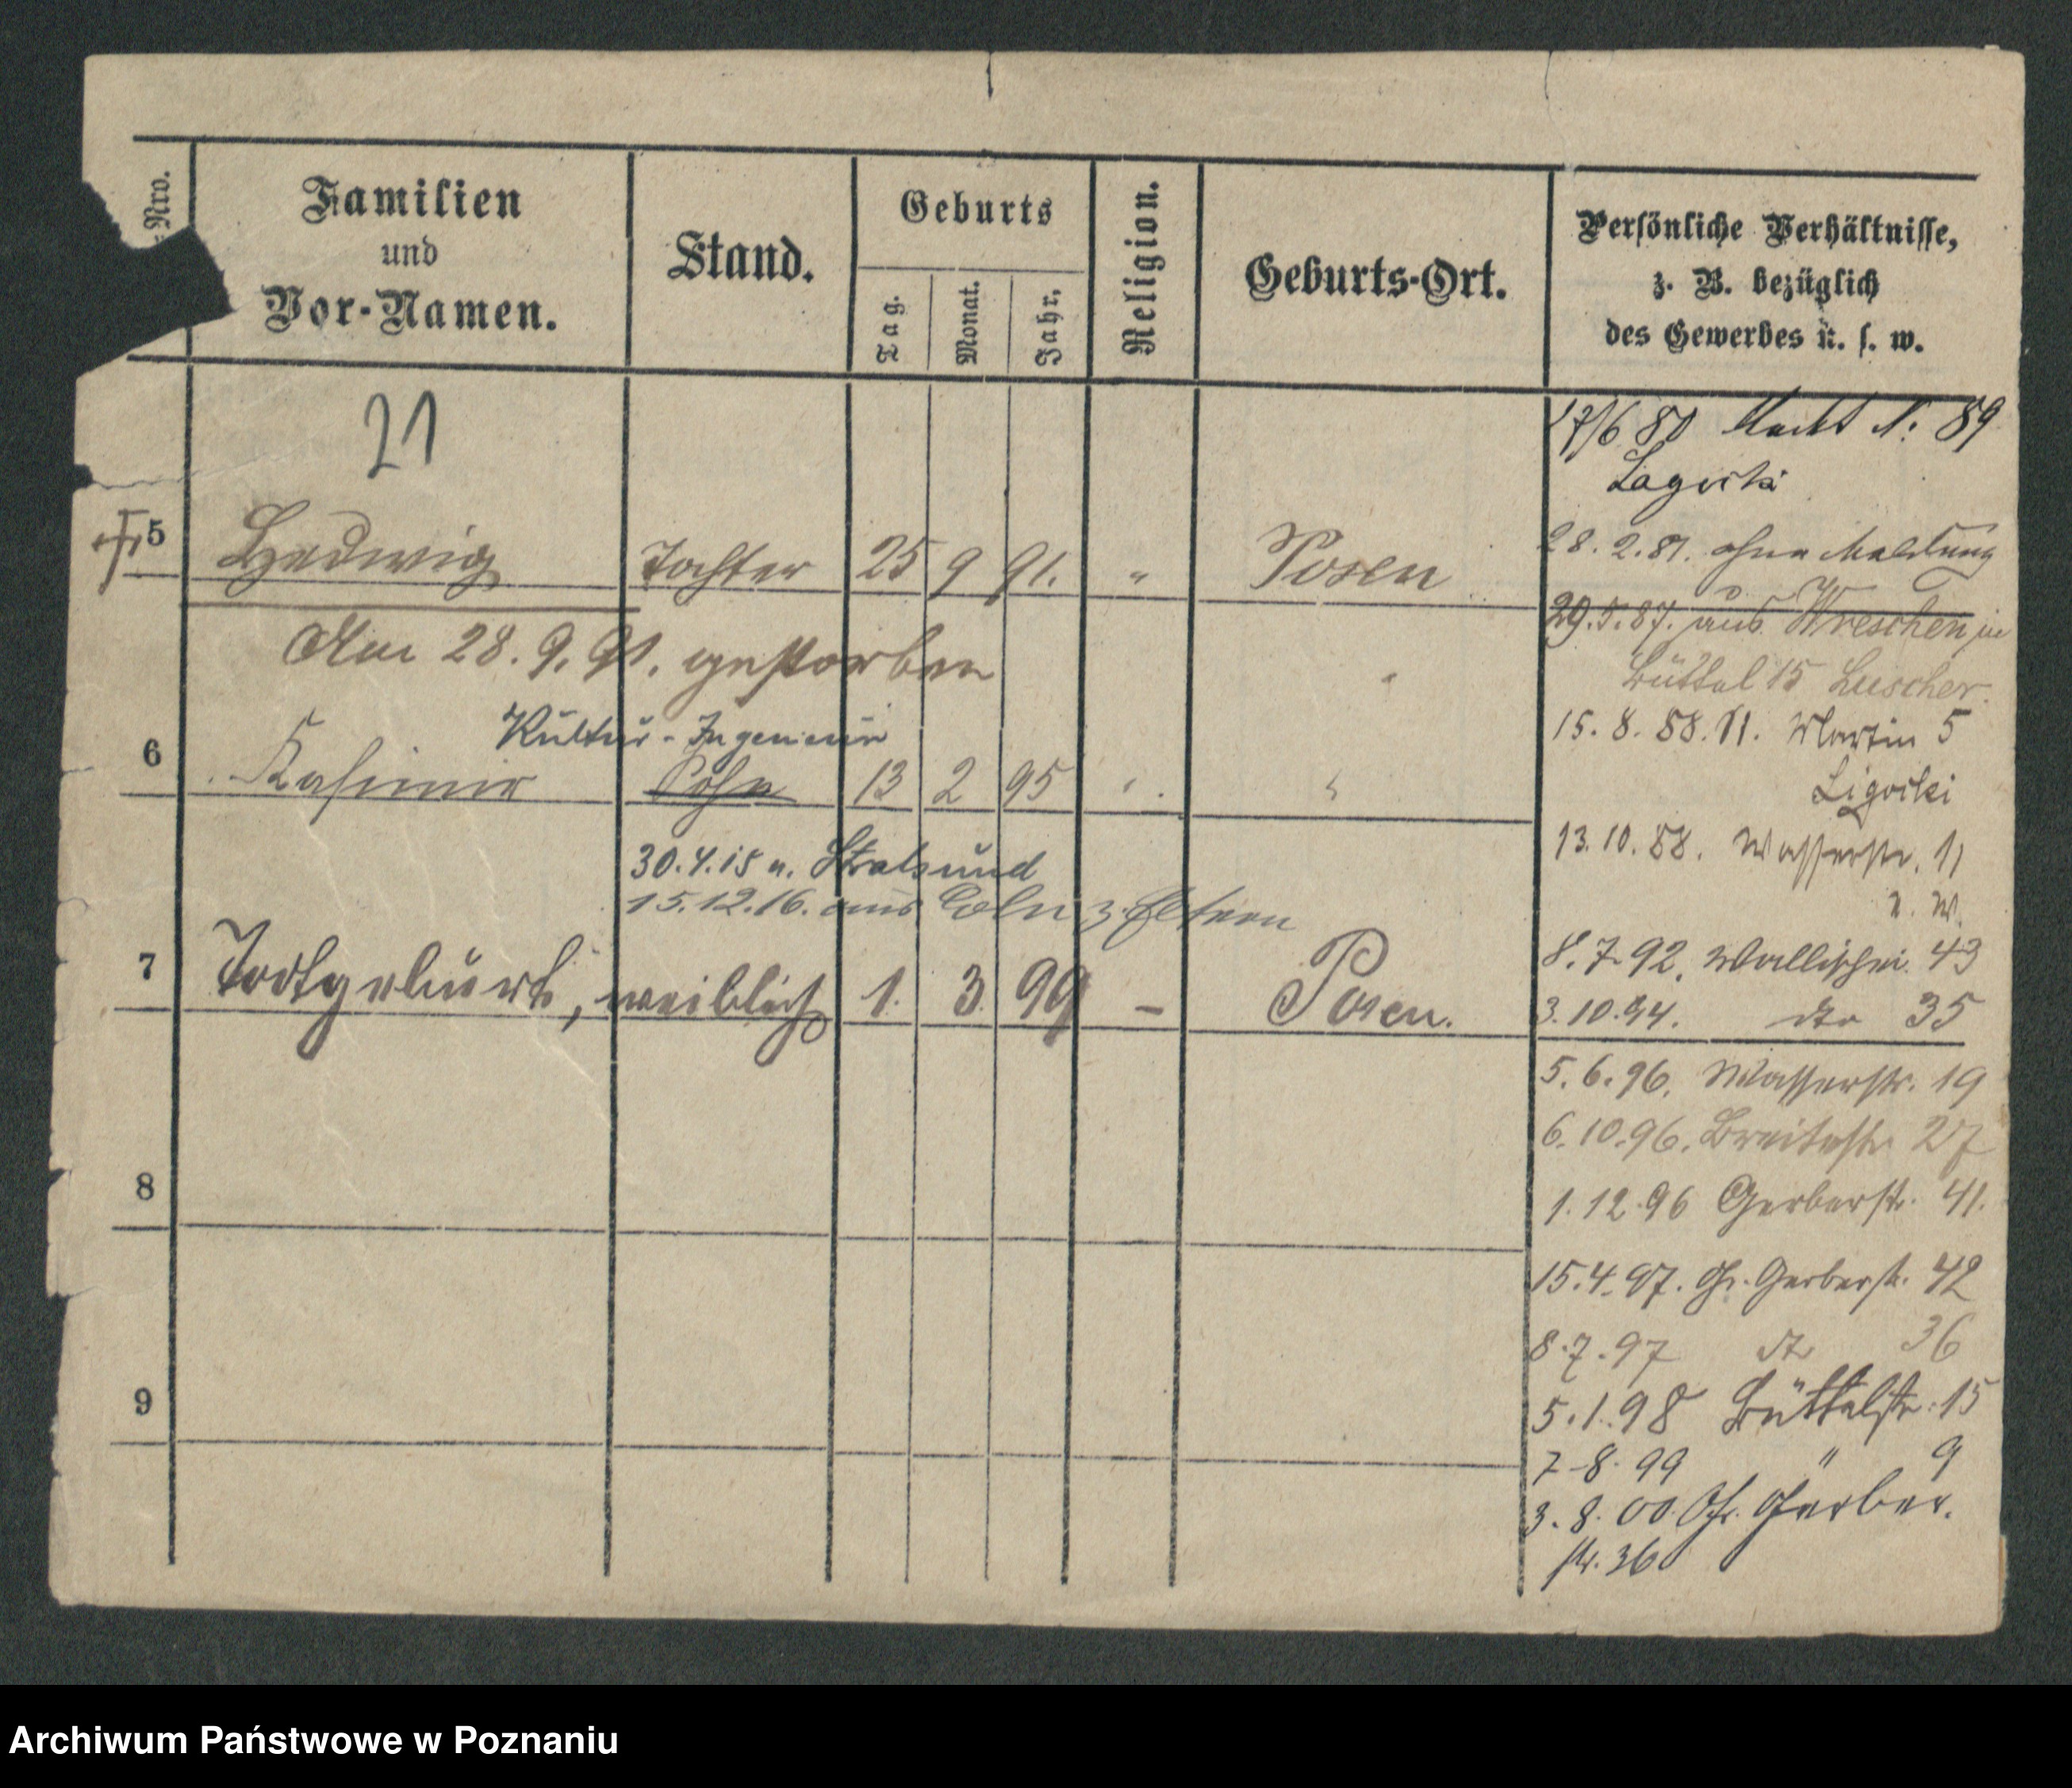 Nro.
Familien
und
Vor-Namen.
Stand.
Geburts
Tag.
Monat.
Jahr.
Religion.
Geburts-Ort.
Persönliche Verhältnisse,
z. B. bezüglich
des Gewerbes u. s. w.
21
5 Hedwig Tochter 25 9 91. " Posen
Am 28. 9. 91. gestorben
Kultur-Ingenieur
6 Kasimir Sohn 13 2 95 " "
30.4.15 n. Stralsund
15.12.16. aus Cöln z. Eltern
7 Todtgeburt, weiblich 1. 3. 99 – Posen.
8
9
17/6 80 Markt N: 89
28. 2. 81. ohne Meldung
29.5.87. aus Wreschen in
Büttel 15 Luscher.
15. 8. 88. Martin 5
Ligocki
13. 10. 88. Wasserstr. 11
8. 7. 92. Wallischei. 43
3. 10. 94. dto 35
5. 6. 96. Wasserstr. 19
6. 10. 96. Breitestr. 27
1. 12. 96 Gerberstr. 41.
15. 4. 97. Gr. Gerberstr. 42
8. 7. 97 dto 36
5. 1. 98 Büttelstr. 15
7-8. 99 " 9
3. 8. 00. Gr. Gerber.
str. 36
Archiwum Państwowe w Poznaniu